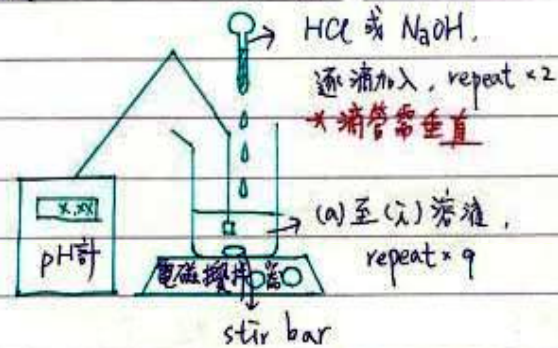 HCl 或 NaOH,
逐滴加入, repeat ×2
* 滴管需垂直
x.xx
(a)至(i)溶液,
repeat × 9
pH計
電磁攪拌器
stir bar